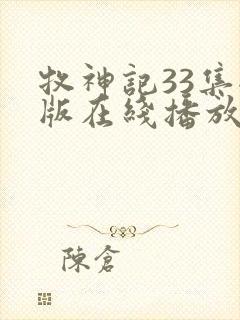 牧神記33集
版在綫播放
陳倉